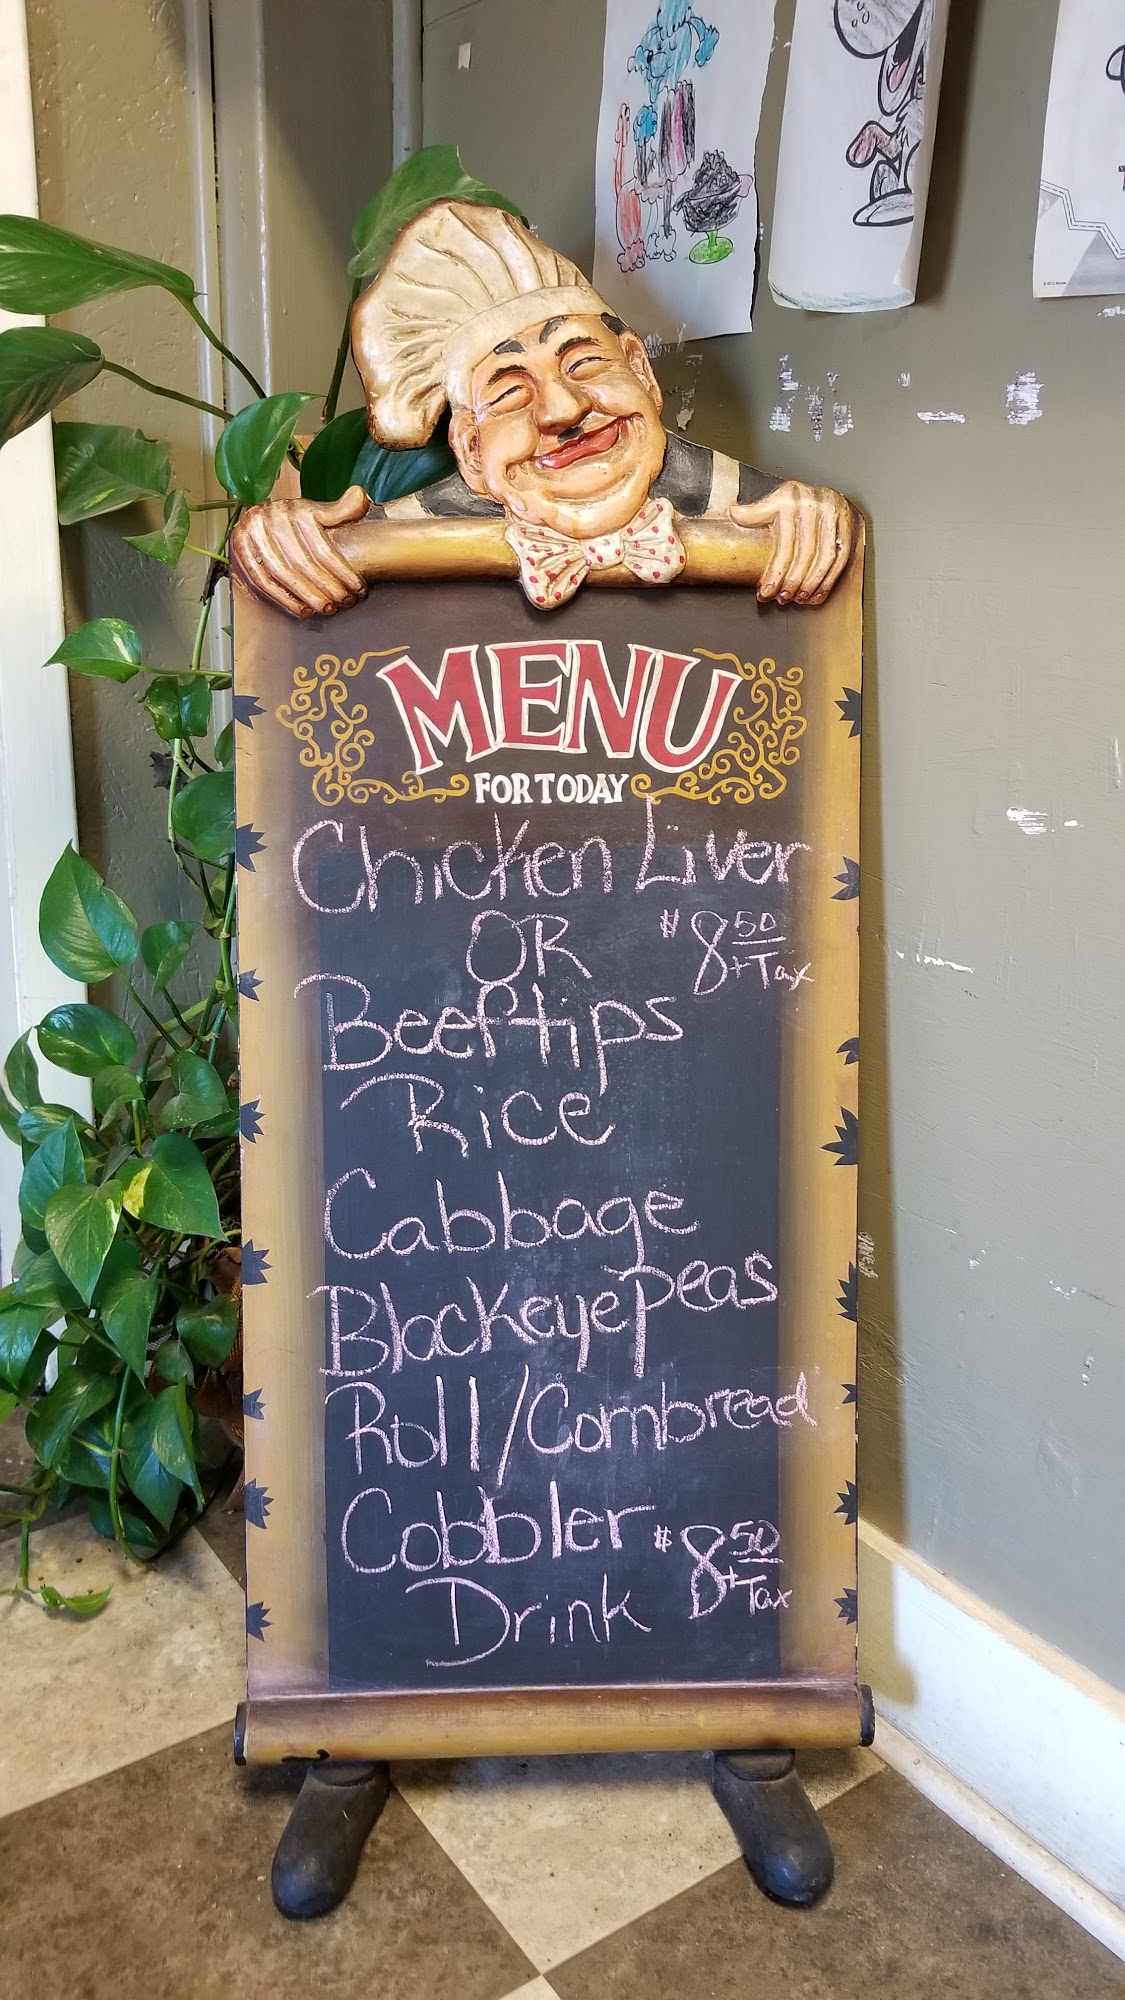 MENU
FOR TODAY
Chicken Liver
OR $8 50
+Tax
Beeftips
Rice
Cabbage
Blackeyepeas
Roll/Cornbread
Cobbler $8 50
+Tax
Drink